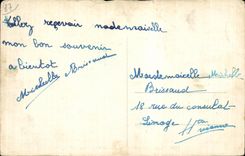 Allez reçevoir mademoiselle
mon bon souvenir
a bientot
Michelle Brissaud
Mademoiselle Michelle
Brissaud
18 rue du consulat
Limoge
Hte vienne